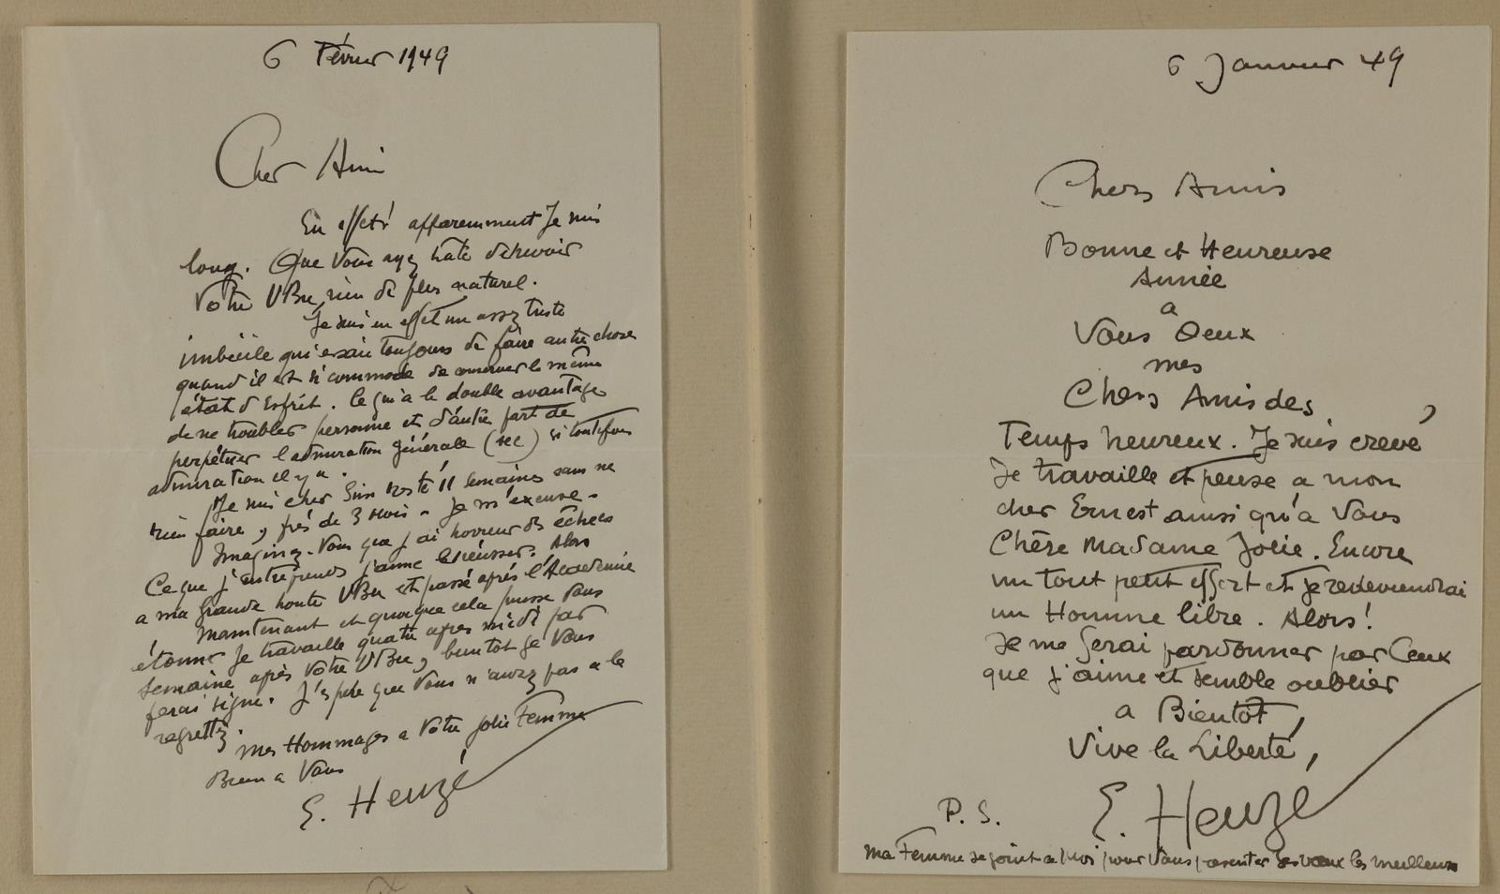 6 Février 1949
Cher Ami
En effet! apparemment Je suis
long. Que Vous ayez hate de revoir
Votre UBu, rien de plus naturel.
Je suis en effet un assez triste
imbécile qui essaie toujours de faire autre chose
quand il est si commode de conserver le même
état d'Esprit. Ce qui a le double avantage
de ne troubler personne et d'autre part de
perpétuer l'admiration générale (sic) si toutefois
admiration il y a.
Je suis cher resté 11 semaines sans ne
rien faire, près de 3 mois - Je m'excuse -
Imaginez-Vous que j'ai horreur des échecs
Ce que j'entreprends j'aime le réussir. Alors
a ma grande honte UBu est passé après l'Académie
Maintenant et quoique cela puisse Vous
étonner Je travaille quatre après midi par
semaine après Votre UBu, bientot je Vous
ferai signe. J'espère que Vous n'aurez pas a le
regretter.
Mes Hommages a Votre jolie Femme
Bien a Vous
E. Heuzé
6 Janvier 49
Chers Amis
Bonne et Heureuse
Année
a
Vous Deux
mes
Chers Amis des
Temps heureux. Je suis crevé,
Je travaille et pense a mon
cher Ernest ainsi qu'a Vous
Chère Madame Jolie. Encore
un tout petit effort et je redeviendrai
un Homme libre. Alors!
Je me ferai pardonner par Ceux
que j'aime et semble oublier
a Bientôt,
Vive la Liberté,
E. Heuzé
P. S.
Ma Femme se joint a moi pour Vous presenter les vœux les meilleurs